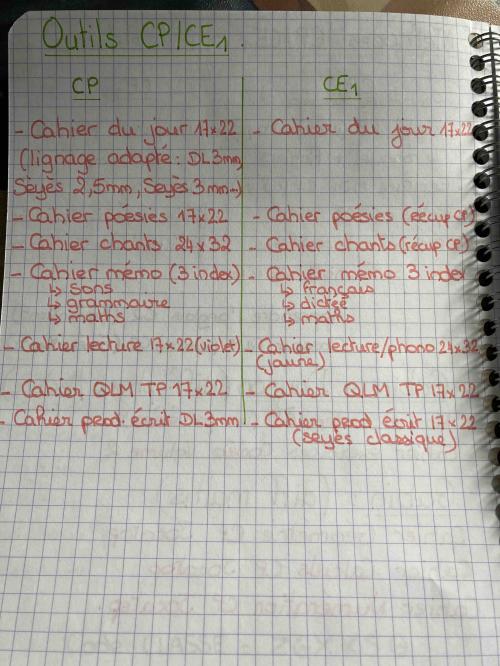 Outils CP/CE1.
CP
- Cahier du jour 17x22
(lignage adapté: DL3mm,
Seyès 2,5mm, Seyès 3mm...)
- Cahier poésies 17x22
- Cahier chants 24x32
- Cahier mémo (3 index)
↳ sons
↳ grammaire
↳ maths
- Cahier lecture 17x22 (violet)
- Cahier QLM TP 17x22
- Cahier prod. écrit DL3mm
CE1
- Cahier du jour 17x22
- Cahier poésies (récup CP)
- Cahier chants (récup CP)
- Cahier mémo 3 index
↳ français
↳ dictée
↳ maths
- Cahier lecture/phono 24x32
(jaune)
- Cahier QLM TP 17x22
- Cahier prod. écrit 17x22
(seyès classique)